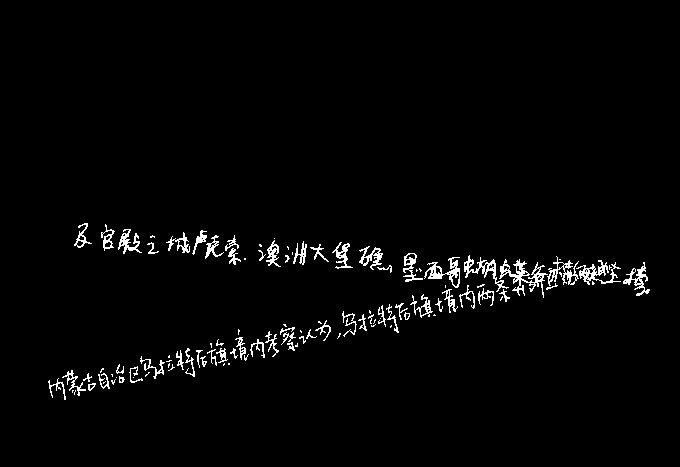 及宫殿之城卢克索、澳洲大堡礁、墨西哥蝴蝶
内蒙古自治区乌拉特后旗境内考察认为,乌拉特后旗境内两条